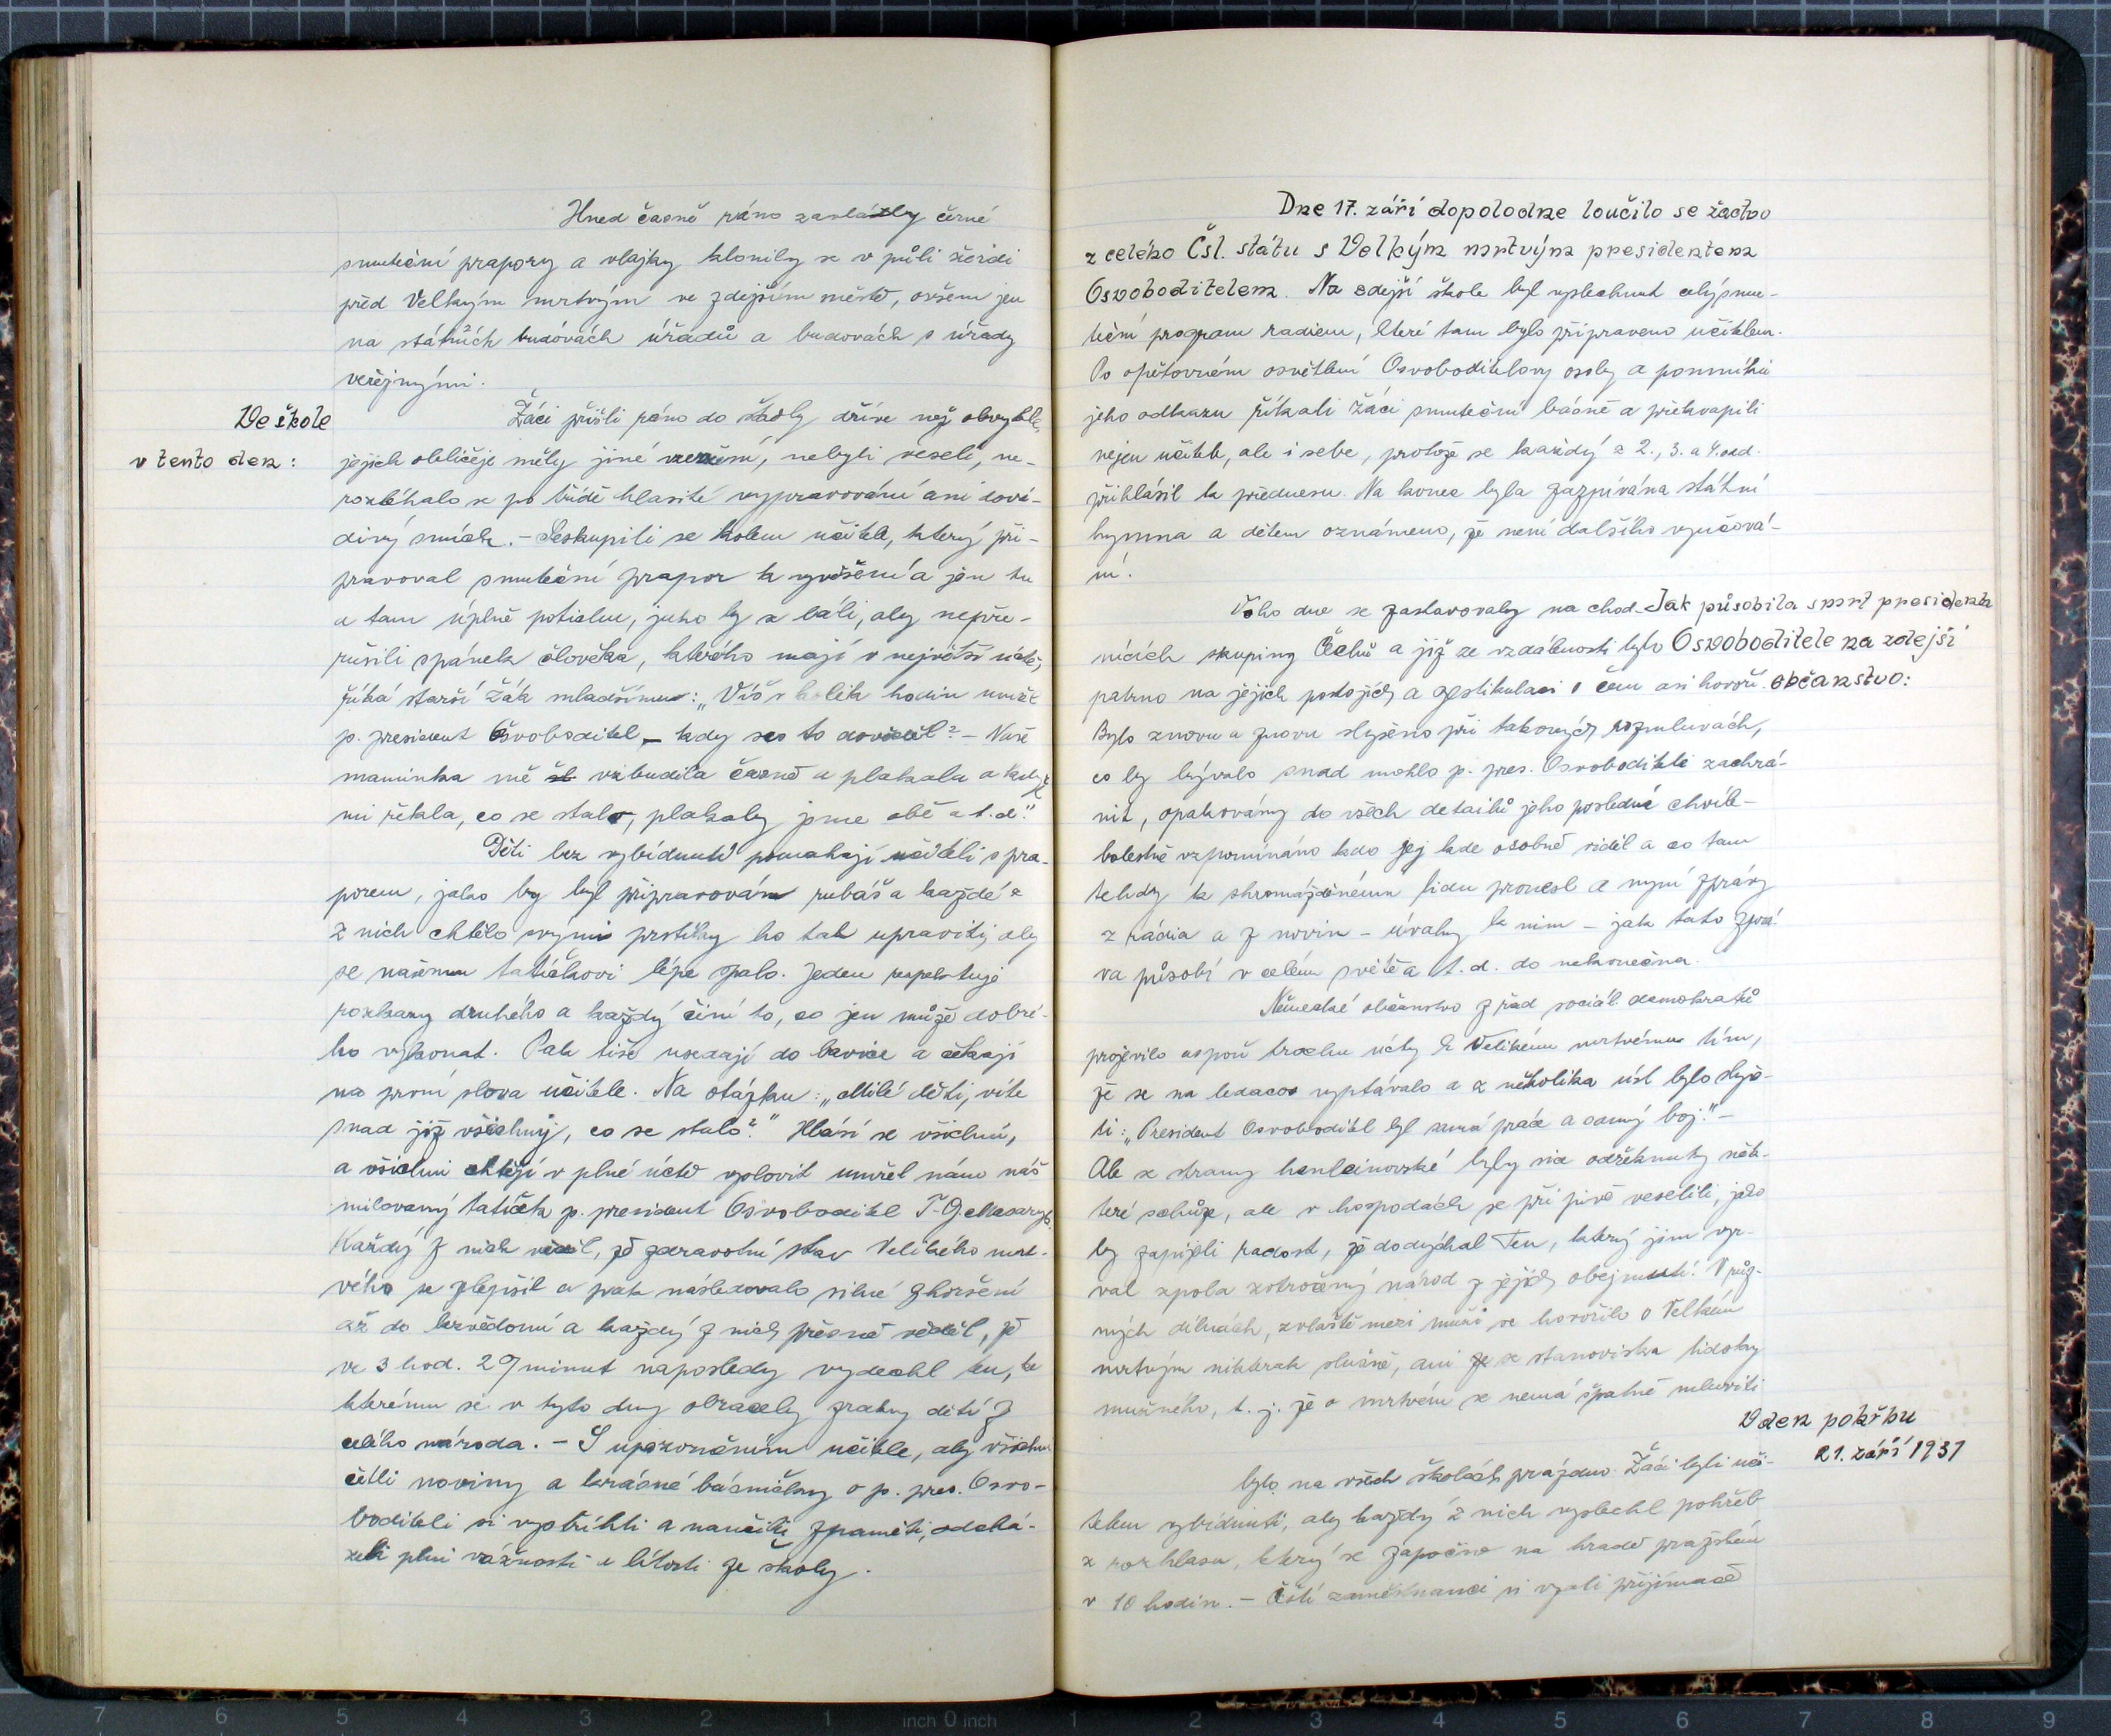 Hned časně ráno zavlály černé
smuteční prapory a vlajky klonily se v půli žerdi
před Velkým mrtvým ve zdejším městě, ovšem jen
na státních budovách úřadů a budovách s úřady
veřejnými.
Ve škole
v tento den:
Žáci přišli ráno do školy dříve než obvykle,
jejich obličeje měly jiné vzezření, nebyli veselí, ne-
rozléhalo se po třídě hlasité vypravování ani dová-
divý smích. - Seskupili se kolem učitele, který při-
pravoval smuteční prapor k vyvěšení a jen tu
a tam úplně potichu, jako by se báli, aby nepře-
rušili spánek člověka, kterého mají v největší úctě,
říká starší žák mladšímu: „Víš v kolik hodin umřel
p. president Osvoboditel - kdy ses to dověděl? - Naše
maminka mě vzbudila časně a plakala a když
mi řekla, co se stalo, plakaly jsme obě a t. d."
Děti bez vybídnutí pomahají učiteli s pra-
porem, jako by byl připravován rubáš a každé
z nich chtělo svými prstíky ho tak upraviti, aby
se našemu tatíčkovi lépe spalo. Jeden respektuje
rozkazy druhého a každý činí to, co jen může dobré-
ho vykonat. Pak tiše usedají do lavice a čekají
na první slova učitele. Na otázku: „Milé děti, víte
snad již všichni, co se stalo?" Hlásí se všichni,
a všichni chtějí v plné úctě vyslovit umřel nám náš
milovaný tatíček p. president Osvoboditel T. G. Masaryk.
Každý z nich věděl, že zdravotní stav Velikého mrt-
vého se zlepšil a pak následovalo silné zhoršení
až do bezvědomí a každý z nich přesně věděl, že
ve 3 hod. 29 minut naposledy vydechl ten, ke
kterému se v tyto dny obracely zraky dětí z
celého národa. - S upozorněním učitele, aby všichni
četli noviny a krásné básničky o p. pres. Osvo-
boditeli si vystřihli a naučili zpaměti, odchá-
zeli plni vážnosti a lítosti ze školy.
Dne 17. září dopoledne loučilo se žactvo
z celého Čsl. státu s Velkým mrtvým presidentem
Osvoboditelem. Na zdejší škole byl vyslechnut celý smu-
teční program radiem, které tam bylo připraveno učitelem.
Po opětovném osvětlení Osvoboditelovy osoby a pomníku
jeho odkazu říkali žáci smuteční básně a překvapili
nejen učitele, ale i sebe, protože se každý z 2., 3. a 4. odd.
přihlásil k přednesu. Na konec byla zazpívána státní
hymna a dětem oznámeno, že není dalšího vyučová-
ní.
Jak působila smrt presidenta
Osvoboditele na zdejší
občanstvo:
Toho dne se zastavovaly na chod-
nících skupiny Čechů a již ze vzdálenosti bylo
patrno na jejich postojích a gestikulaci o čem asi hovoří.
Bylo znovu a znovu slyšeno při takových rozmluvách,
co by bývalo snad mohlo p. pres. Osvoboditele zachrá-
nit, opakovány do všech detailů jeho poslední chvíle -
bolestně vzpomínáno kdo jej kde osobně viděl a co tam
tehdy k shromážděnému lidu pronesl a nyní zprávy
z rádia a z novin - úvahy k nim - jak tato zprá-
va působí v celém světě a t. d. do nekonečna.
Německé občanstvo z řad sociál. demokratů
projevilo aspoň trochu úcty k Velikému mrtvému tím,
že se na ledacos vyptávalo a z několika úst bylo slyše-
ti: „President Osvoboditel byl samá práce a samý boj." -
Ale ze strany henleinovské byly sice odřeknuty něk-
teré schůze, ale v hospodách se při pivě veselili, jako
by zapíjeli radost, že dodýchal Ten, který jim vyr-
val zpola zotročený národ z jejich obejmutí! V růz-
ných dílnách, zvláště mezi muži se hovořilo o Velkém
mrtvým nikterak slušně, ani ze stanoviska lidsky
mužného, t. j. že o mrtvém se nemá špatně mluviti
V den pohřbu
21. září 1937
bylo na všech školách prázdno. Žáci byli uči-
telem vybídnuti, aby každý z nich vyslechl pohřeb
z rozhlasu, který se započne na hradě pražském
v 10 hodin. - Čeští zaměstnanci si vzali přijímače
7 6 5 4 3 2 1 inch 0 inch 1 2 3 4 5 6 7 8 9